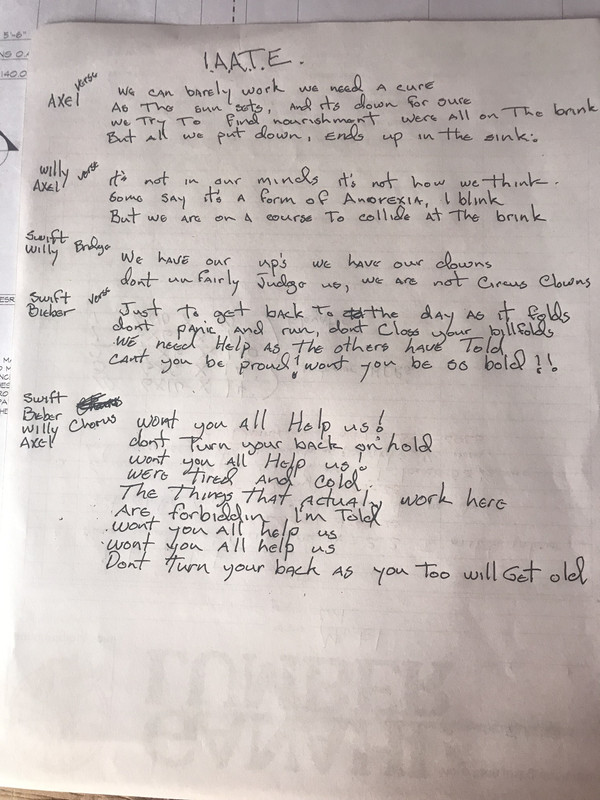 I.A.A.T.E.
AXEL verse We can barely work we need a cure
As The sun sets, and its down for sure
We Try To find nourishment were all on The brink
But all we put down, ends up in the sink:
Willy AXEL verse it's not in our minds it's not how we think.
Some say it's a form of Anorexia, I blink
But we are on a course To collide at The brink
Swift Willy Bridge We have our up's we have our downs
dont unfairly Judge us, we are not Circus Clowns
Swift Bieber verse Just to get back to the day as it folds
dont panic and run, dont Close your billfolds
We need Help as the others have Told
Cant you be proud! wont you be so bold!!
Swift
Bieber
Willy Chorus
AXEL
wont you all Help us!
dont Turn your back on hold
wont you all Help us!
were Tired and cold.
The Things that actualy work here
Are forbiddin I'm Told
wont you all help us
wont you all help us
Dont Turn your back as you Too will Get old
5'-6"
140.0
ESR
LUMBER
GANAHL